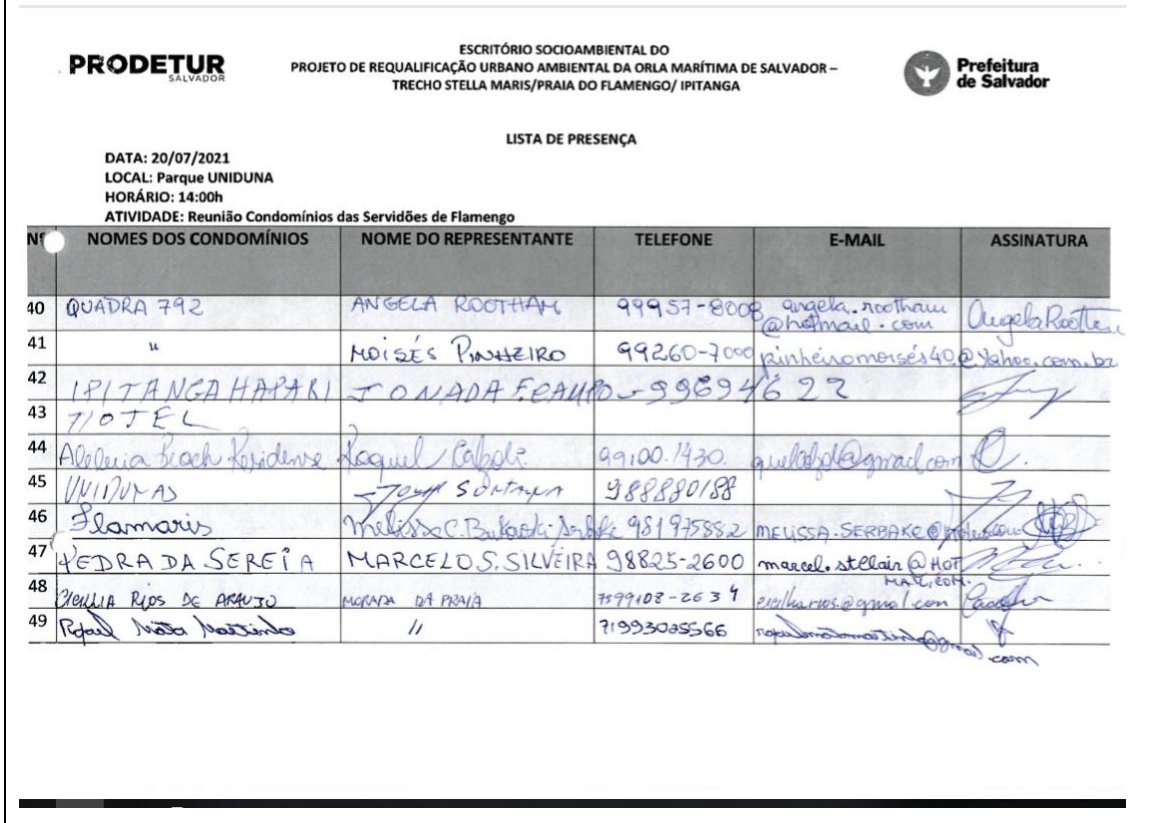 PRODETUR
SALVADOR
ESCRITÓRIO SOCIOAMBIENTAL DO
PROJETO DE REQUALIFICAÇÃO URBANO AMBIENTAL DA ORLA MARÍTIMA DE SALVADOR –
TRECHO STELLA MARIS/PRAIA DO FLAMENGO/ IPITANGA
Prefeitura
de Salvador
LISTA DE PRESENÇA
DATA: 20/07/2021
LOCAL: Parque UNIDUNA
HORÁRIO: 14:00h
ATIVIDADE: Reunião Condomínios das Servidões de Flamengo
NOMES DOS CONDOMÍNIOS NOME DO REPRESENTANTE TELEFONE E-MAIL ASSINATURA
40 QUADRA 792 ANGELA ROOTHAM 99957-8008 angela.rootham
@hotmail.com
41 " MOISÉS PINHEIRO 99260-7000 pinheiromoisés40@yahoo.com.br
42 IPITANGA JONADA
43 HOTEL
44 Beach Residense Raquel 99100.1430.
45 UNIDUNAS 988880188
46 Flamaris Melissa C. 981975882
47 PEDRA DA SEREIA MARCELO S. SILVEIRA 98825-2600 marcel.stellair@HOT
MAIL.COM.
48 RIOS DE ARAUJO MORADA DA PRAIA
49 Rafael Mota Martinho " 71993025566